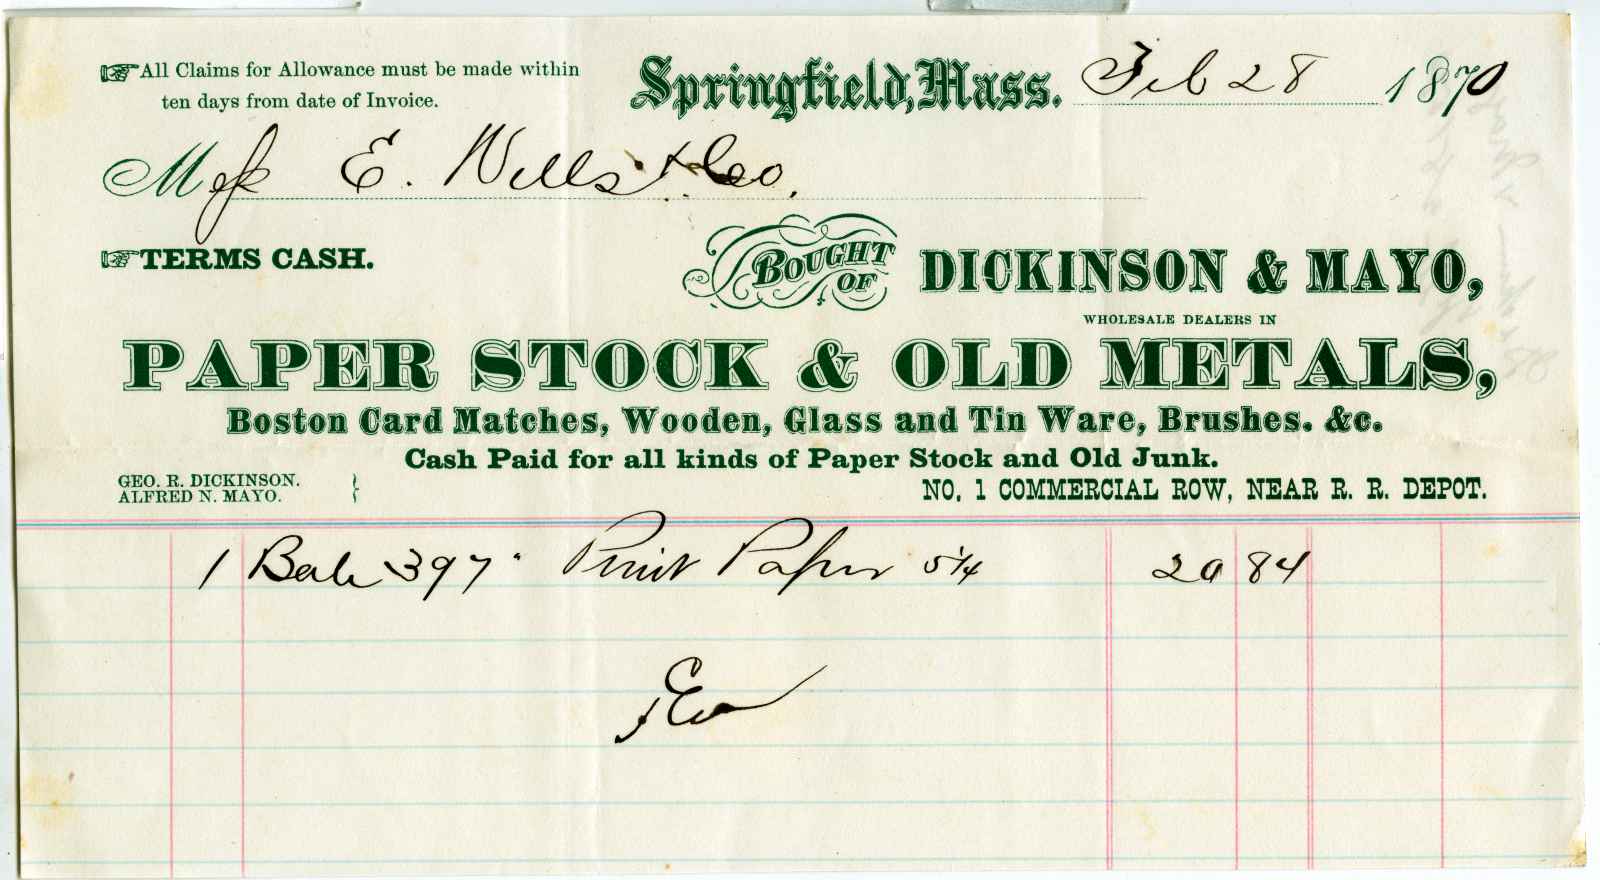 All Claims for Allowance must be made within
ten days from date of Invoice.
Springfield, Mass. Feb 28 1870
Mess E. Wells & Co.
TERMS CASH.
BOUGHT OF DICKINSON & MAYO,
WHOLESALE DEALERS IN
PAPER STOCK & OLD METALS,
Boston Card Matches, Wooden, Glass and Tin Ware, Brushes. &c.
Cash Paid for all kinds of Paper Stock and Old Junk.
GEO. R. DICKINSON.
ALFRED N. MAYO.
NO. 1 COMMERCIAL ROW, NEAR R. R. DEPOT.
1 Bale 397 Print Paper 5¼ 20 84